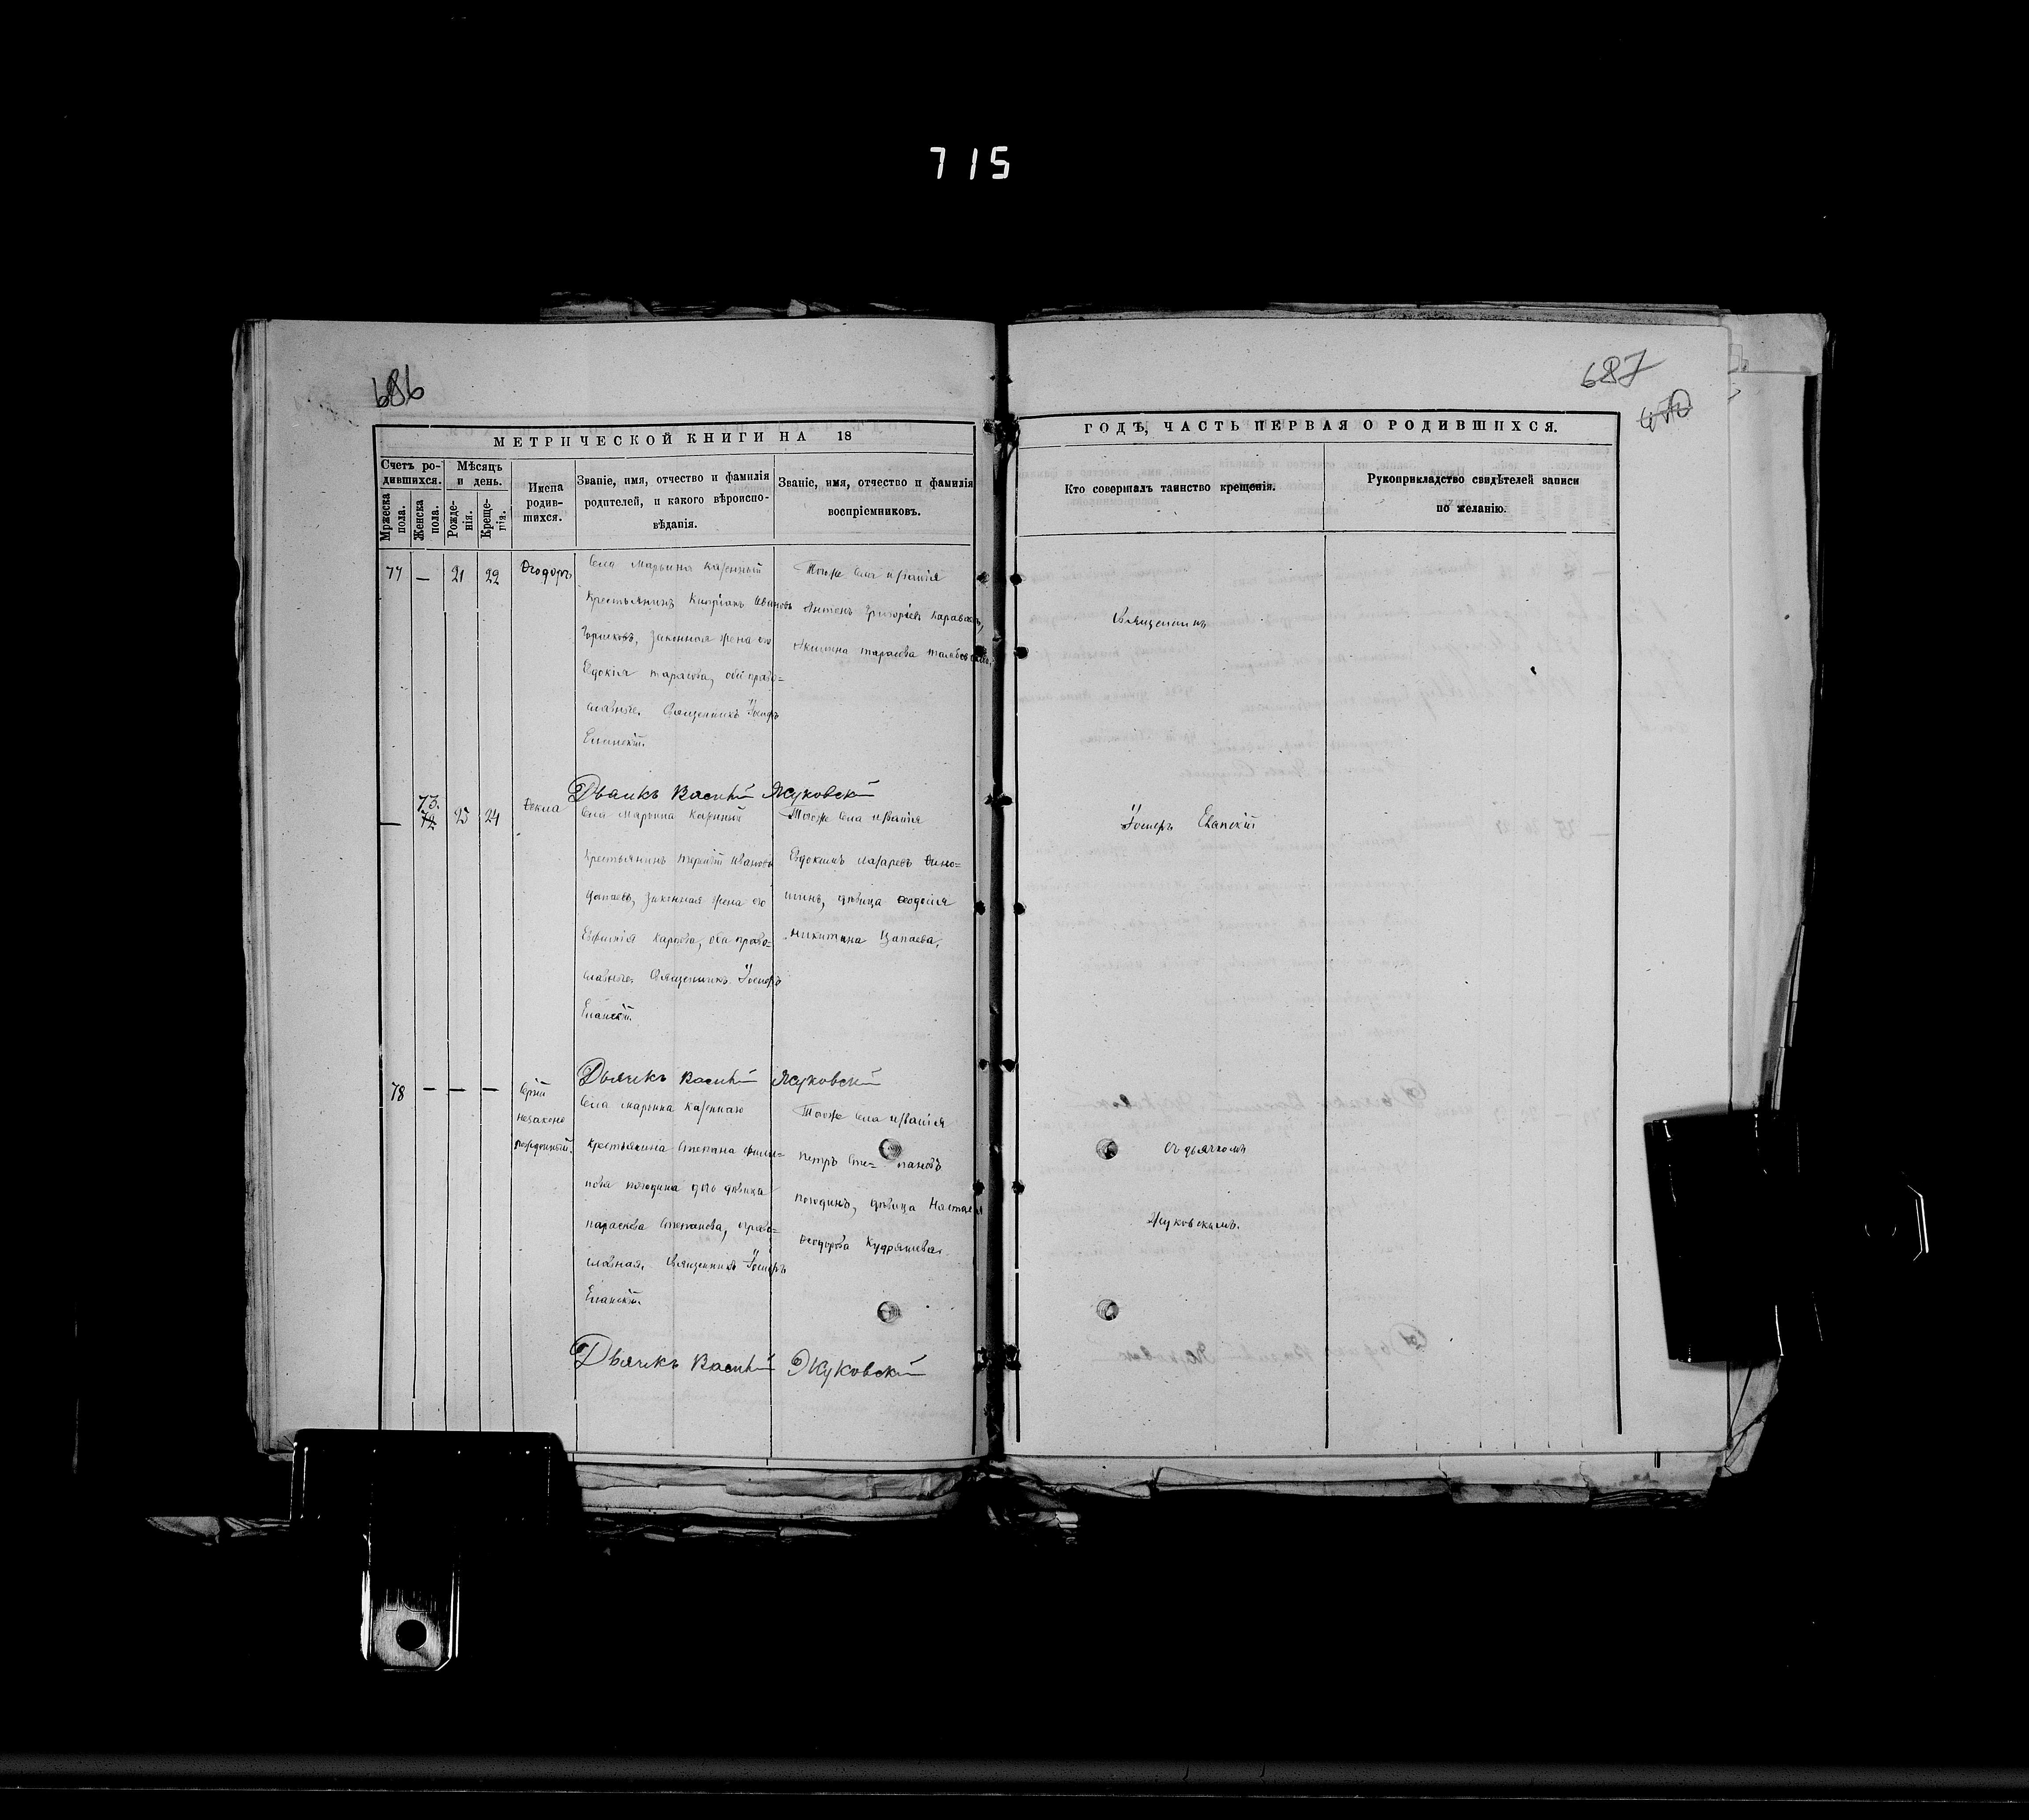 715
686
МЕТРИЧЕСКОЙ КНИГИ НА 18
Счетъ родившихся.
Мужеска пола.
Женска пола.
Мѣсяцъ и день.
Рожденія.
Крещенія.
Имена родившихся.
Званіе, имя, отчество и фамилія
родителей, и какого вѣроиспо-
вѣданія.
Званіе, имя, отчество и фамилія
воспріемниковъ.
77 — 21 22 Ѳеодоръ
Села Марьина казенный
крестьянинъ Кипріанъ Ивановъ
законная жена его
Евдокія Тарасова, оба право-
славные. Священникъ Іосифъ
Еланскій.
Тогоже села и званія
Антонъ Григорьевъ
Акилина Тарасова
Дьячкъ Василій Жуковскій
— 73. 72 23 24 Ѳекла
Села Марьина казенный
крестьянинъ Терентій Ивановъ
Цапаевъ, законная жена его
Евфимія Карпова, оба право-
славные. Священникъ Іосифъ
Еланскій.
Тогоже села и званія
Евдокимъ Лазаревъ
дѣвица Ѳеодосія
Никитина Цапаева.
Дьячкъ Василій Жуковскій
78 — — — Сергій
незаконо
рожденный.
Села Марьина казеннаго
крестьянина Степана Филип-
пова Погодина дочь дѣвица
Параскева Степанова, право-
славная. Священникъ Іосифъ
Еланскій.
Тогоже села и званія
Петръ Сте= пановъ
Погодинъ, дѣвица Настасія
Ѳеодорова Кудряшева.
Дьячкъ Василій Жуковскій
687
ГОДЪ, ЧАСТЬ ПЕРВАЯ О РОДИВШИХСЯ.
Кто совершалъ таинство крещенія.
Рукоприкладство свидѣтелей записи
по желанію.
Священникъ
Іосифъ Еланскій
съ дьячкомъ
Жуковскимъ.